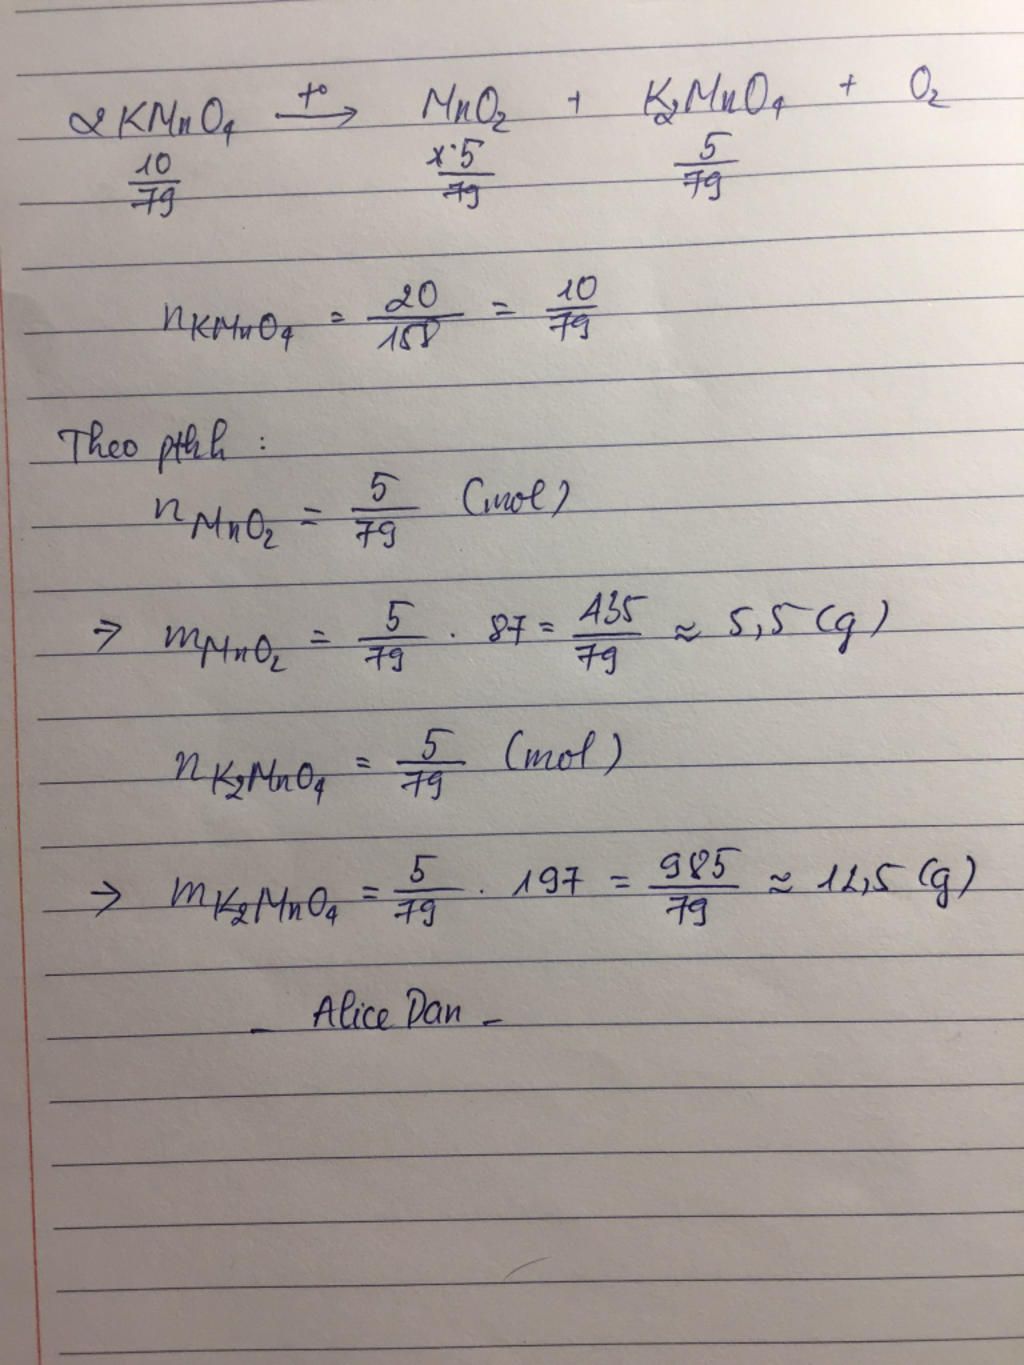 2KMnO₄ —t°→ MnO₂ + K₂MnO₄ + O₂
10/79 x·5/79 5/79
nKMnO₄ = 20/158 = 10/79
Theo pthh :
nMnO₂ = 5/79 (mol)
→ mMnO₂ = 5/79 . 87 = 435/79 ≈ 5,5 (g)
nK₂MnO₄ = 5/79 (mol)
→ mK₂MnO₄ = 5/79 . 197 = 985/79 ≈ 12,5 (g)
_ Alice Dan _